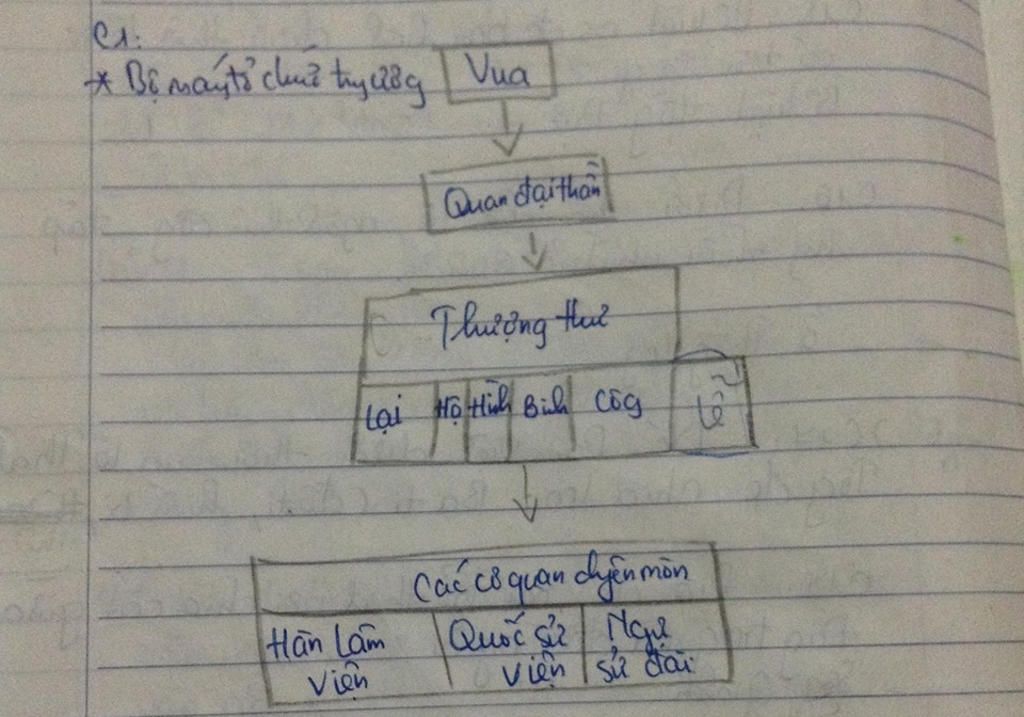 C1:
* Bộ máy tổ chức ty ươg
Vua
Quan đại thần
Thượng thư
Lại Hộ Hình Binh Côg Lễ
Các cơ quan chyên môn
Hàn Lâm Quốc sử Ngự
viện viện sử đài